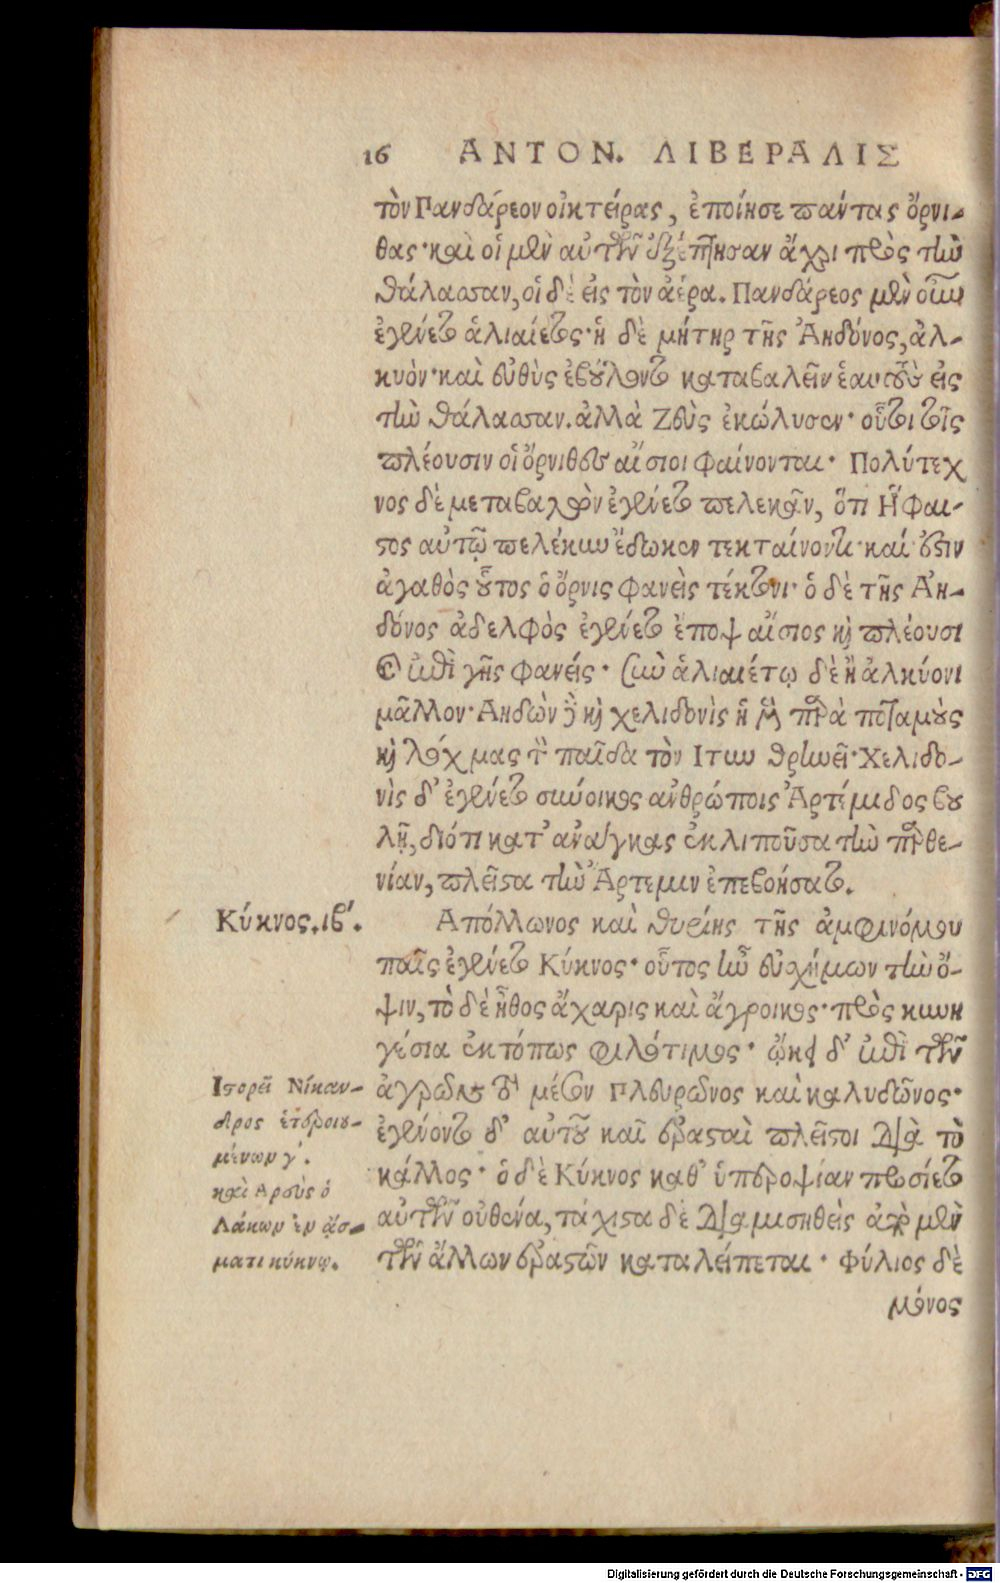 16 ΑΝΤΟΝ. ΛΙΒΕΡΑΛΙΣ
τὸν Πανδάρεον οἰκτείρας, ἐποίησε πάντας ὄρνι-
θας· καὶ οἱ μὲν αὐτῶν ἐξέπτησαν ἄχρι πρὸς τὴν
θάλασσαν, οἱ δὲ εἰς τὸν ἀέρα. Πανδάρεος μὲν οὖν
ἐγένετο ἁλιαίετος· ἡ δὲ μήτηρ τῆς Ἀηδόνος, ἀλ-
κυόν· καὶ εὐθὺς ἐβούλοντο καταβαλεῖν ἑαυτοὺς εἰς
τὴν θάλασσαν. ἀλλὰ Ζεὺς ἐκώλυσεν· οὗτοι τοῖς
πλέουσιν οἱ ὄρνιθες αἴσιοι φαίνονται· Πολύτεχ
νος δὲ μεταβαλὼν ἐγένετο πελεκᾶν, ὅτι Ἥφαι-
στος αὐτῷ πελέκυν ἔδωκεν τεκταίνοντι· καί ἐστιν
ἀγαθὸς οὗτος ὁ ὄρνις φανεὶς τέκτονι· ὁ δὲ τῆς Ἀη-
δόνος ἀδελφὸς ἐγένετο ἔποψ αἴσιος καὶ πλέουσι
καὶ ἐπὶ γῆς φανείς· σὺν ἁλιαιέτῳ δὲ ἢ ἀλκύονι
μᾶλλον· Ἀηδὼν δὲ καὶ χελιδονὶς ἡ μὲν παρὰ ποταμοὺς
καὶ λόχμας τὸν παῖδα τὸν Ἴτυν θρηνεῖ· Χελιδο-
νὶς δ' ἐγένετο σύνοικος ἀνθρώποις Ἀρτέμιδος βου
λῇ, διότι κατ' ἀνάγκας ἐκλιποῦσα τὴν παρθε-
νίαν, πλεῖστα τὴν Ἄρτεμιν ἐπεβοήσατο.
Κύκνος. ιβ'.
Ἀπόλλωνος καὶ θυρίης τῆς ἀμφινόμου
παῖς ἐγένετο Κύκνος· οὗτος ἦν εὐσχήμων τὴν ὄ-
ψιν, τὸ δὲ ἦθος ἄχαρις καὶ ἄγροικος· πρὸς κυνη
γέσια ἐκτόπως φιλότιμος· ᾤκει δ' ἐπὶ τῶν
ἀγρῶν τὸ μέσον Πλευρῶνος καὶ καλυδῶνος·
ἐγένοντο δ' αὐτοῦ καὶ ἐρασταὶ πλεῖστοι διὰ τὸ
κάλλος· ὁ δὲ Κύκνος καθ' ὑπεροψίαν προσίετο
αὐτῶν οὐθένα, τάχιστα δὲ διαμισηθεὶς ὑπὸ μὲν
τῶν ἄλλων ἐραστῶν καταλείπεται· Φύλιος δὲ
μόνος
Ἱστορεῖ Νίκαν-
δρος ἑτεροιου-
μένων γ'.
καὶ Ἀρεὺς ὁ
Λάκων ἐν ᾄσ-
ματι κύκνῳ.
Digitalisierung gefördert durch die Deutsche Forschungsgemeinschaft - DFG